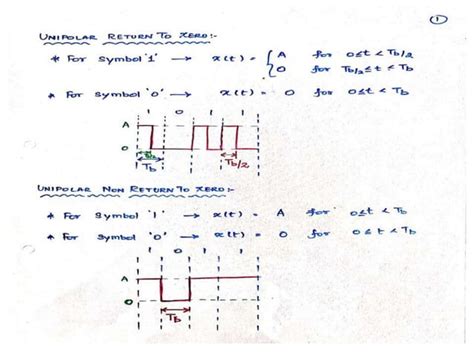 1
UNIPOLAR RETURN TO ZERO:-
* For Symbol '1' → x(t) = { A for 0≤t<Tb/2
0 for Tb/2≤t<Tb
* For Symbol '0' → x(t) = 0 for 0≤t<Tb
1 0 1 1
A
0
Tb/2
Tb Tb/2
UNIPOLAR NON RETURN TO ZERO:-
* For Symbol '1' → x(t) = A for 0≤t<Tb
* For Symbol '0' → x(t) = 0 for 0≤t<Tb
1 0 1 1
A
0
Tb